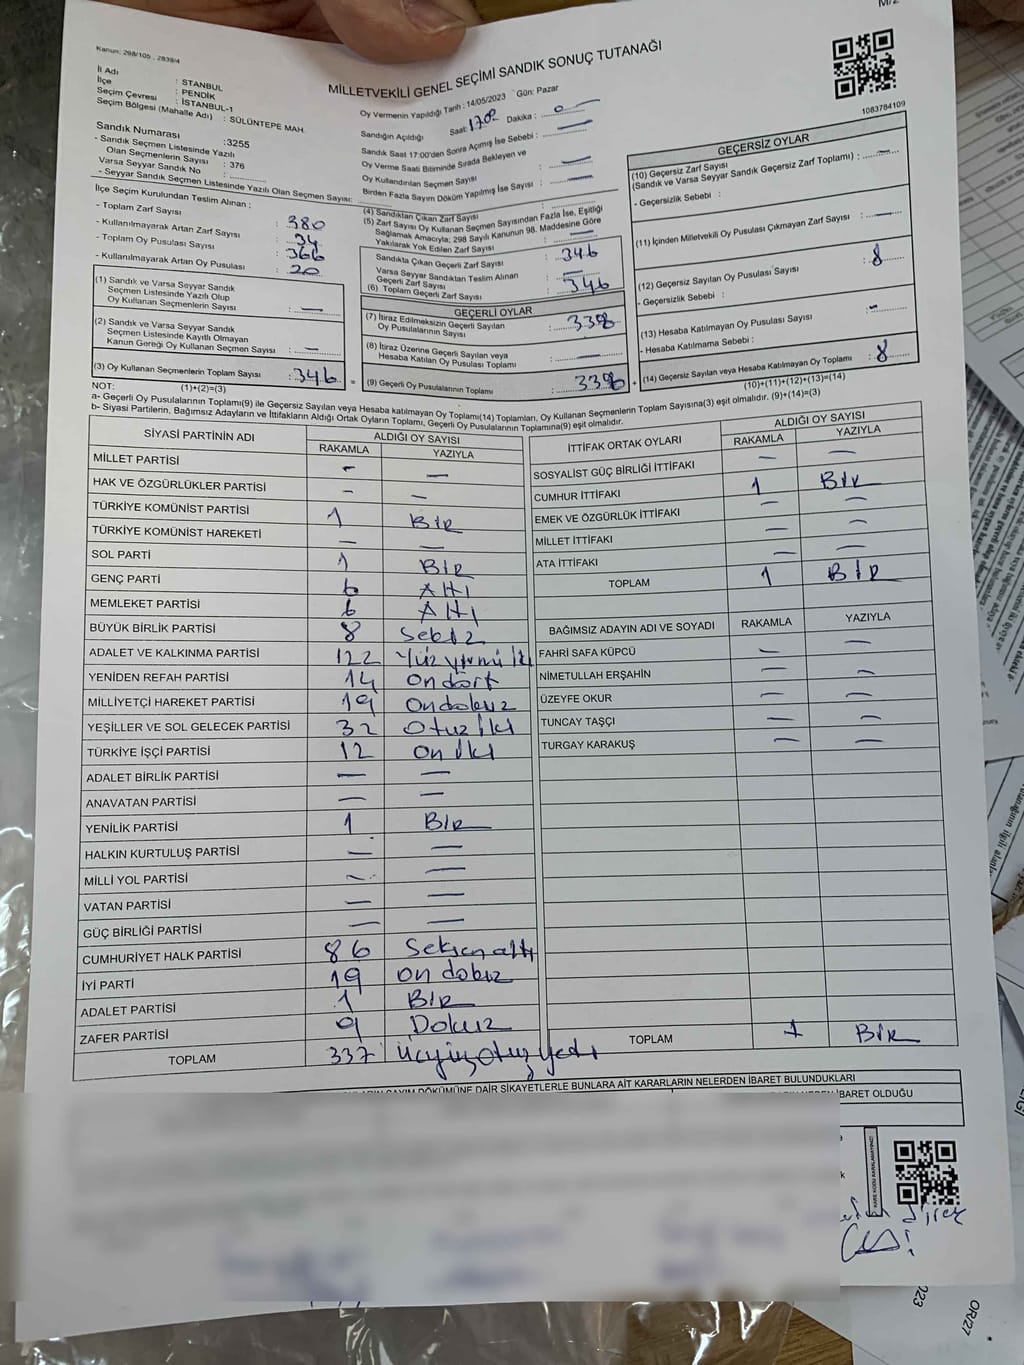 M/2
Kanun: 298/105 , 2839/4
MİLLETVEKİLİ GENEL SEÇİMİ SANDIK SONUÇ TUTANAĞI
1083784109
İl Adı : STANBUL
İlçe : PENDİK
Seçim Çevresi : İSTANBUL-1
Seçim Bölgesi (Mahalle Adı) : SÜLÜNTEPE MAH.
Sandık Numarası :3255
- Sandık Seçmen Listesinde Yazılı
Olan Seçmenlerin Sayısı : 376
Varsa Seyyar Sandık No :
- Seyyar Sandık Seçmen Listesinde Yazılı Olan Seçmen Sayısı:
İlçe Seçim Kurulundan Teslim Alınan ;
- Toplam Zarf Sayısı : 380
- Kullanılmayarak Artan Zarf Sayısı : 34
- Toplam Oy Pusulası Sayısı : 366
- Kullanılmayarak Artan Oy Pusulası : 20
(1) Sandık ve Varsa Seyyar Sandık
Seçmen Listesinde Yazılı Olup
Oy Kullanan Seçmenlerin Sayısı : —
(2) Sandık ve Varsa Seyyar Sandık
Seçmen Listesinde Kayıtlı Olmayan
Kanun Gereği Oy Kullanan Seçmen Sayısı : —
(3) Oy Kullanan Seçmenlerin Toplam Sayısı : 346 =
(1)+(2)=(3)
Oy Vermenin Yapıldığı Tarih : 14/05/2023 Gün: Pazar
Sandığın Açıldığı Saat: 17.02 Dakika : 0
Sandık Saat 17:00'den Sonra Açımış İse Sebebi : —
Oy Verme Saati Bitiminde Sırada Bekleyen ve
Oy Kullandırılan Seçmen Sayısı : —
Birden Fazla Sayım Döküm Yapılmış İse Sayısı : —
(4) Sandıktan Çıkan Zarf Sayısı :
(5) Zarf Sayısı Oy Kullanan Seçmen Sayısından Fazla İse, Eşitliği
Sağlamak Amacıyla; 298 Sayılı Kanunun 98. Maddesine Göre
Yakılarak Yok Edilen Zarf Sayısı : —
Sandıkta Çıkan Geçerli Zarf Sayısı : 346
Varsa Seyyar Sandıktan Teslim Alınan
Geçerli Zarf Sayısı : —
(6) Toplam Geçerli Zarf Sayısı : 346
GEÇERLİ OYLAR
(7) İtiraz Edilmeksizin Geçerli Sayılan
Oy Pusulalarının Sayısı : 338
(8) İtiraz Üzerine Geçerli Sayılan veya
Hesaba Katılan Oy Pusulası Toplamı : —
(9) Geçerli Oy Pusulalarının Toplamı : 338 +
GEÇERSİZ OYLAR
(10) Geçersiz Zarf Sayısı
(Sandık ve Varsa Seyyar Sandık Geçersiz Zarf Toplamı) : —
- Geçersizlik Sebebi :
(11) İçinden Milletvekili Oy Pusulası Çıkmayan Zarf Sayısı : —
(12) Geçersiz Sayılan Oy Pusulası Sayısı : 8
- Geçersizlik Sebebi :
(13) Hesaba Katılmayan Oy Pusulası Sayısı : —
- Hesaba Katılmama Sebebi :
(14) Geçersiz Sayılan veya Hesaba Katılmayan Oy Toplamı : 8
(10)+(11)+(12)+(13)=(14)
NOT:
a- Geçerli Oy Pusulalarının Toplamı(9) ile Geçersiz Sayılan veya Hesaba katılmayan Oy Toplamı(14) Toplamları, Oy Kullanan Seçmenlerin Toplam Sayısına(3) eşit olmalıdır. (9)+(14)=(3)
b- Siyasi Partilerin, Bağımsız Adayların ve İttifakların Aldığı Ortak Oyların Toplamı, Geçerli Oy Pusulalarının Toplamına(9) eşit olmalıdır.
SİYASİ PARTİNİN ADI ALDIĞI OY SAYISI
RAKAMLA YAZIYLA
MİLLET PARTİSİ — —
HAK VE ÖZGÜRLÜKLER PARTİSİ — —
TÜRKİYE KOMÜNİST PARTİSİ 1 BİR
TÜRKİYE KOMÜNİST HAREKETİ — —
SOL PARTİ 1 BİR
GENÇ PARTİ 6 Altı
MEMLEKET PARTİSİ 6 Altı
BÜYÜK BİRLİK PARTİSİ 8 Sekiz
ADALET VE KALKINMA PARTİSİ 122 Yüz yirmi iki
YENİDEN REFAH PARTİSİ 14 On dört
MİLLİYETÇİ HAREKET PARTİSİ 19 Ondokuz
YEŞİLLER VE SOL GELECEK PARTİSİ 32 Otuz iki
TÜRKİYE İŞÇİ PARTİSİ 12 On iki
ADALET BİRLİK PARTİSİ — —
ANAVATAN PARTİSİ — —
YENİLİK PARTİSİ 1 BİR
HALKIN KURTULUŞ PARTİSİ — —
MİLLİ YOL PARTİSİ — —
VATAN PARTİSİ — —
GÜÇ BİRLİĞİ PARTİSİ — —
CUMHURİYET HALK PARTİSİ 86 Seksen altı
İYİ PARTİ 19 on dokuz
ADALET PARTİSİ 1 BİR
ZAFER PARTİSİ 9 Dokuz
TOPLAM 337 üçyüz otuz yedi
İTTİFAK ORTAK OYLARI ALDIĞI OY SAYISI
RAKAMLA YAZIYLA
SOSYALİST GÜÇ BİRLİĞİ İTTİFAKI — —
CUMHUR İTTİFAKI 1 Bir
EMEK VE ÖZGÜRLÜK İTTİFAKI — —
MİLLET İTTİFAKI — —
ATA İTTİFAKI — —
TOPLAM 1 BİR
BAĞIMSIZ ADAYIN ADI VE SOYADI RAKAMLA YAZIYLA
FAHRİ SAFA KÜPCÜ — —
NİMETULLAH ERŞAHİN — —
ÜZEYFE OKUR — —
TUNCAY TAŞÇI — —
TURGAY KARAKUŞ — —
TOPLAM 1 BİR
SAYIM DÖKÜMÜNE DAİR ŞİKAYETLERLE BUNLARA AİT KARARLARIN NELERDEN İBARET BULUNDUKLARI
İBARET OLDUĞU
KARE KODU KARALAMAYINIZ!
023
OR/27